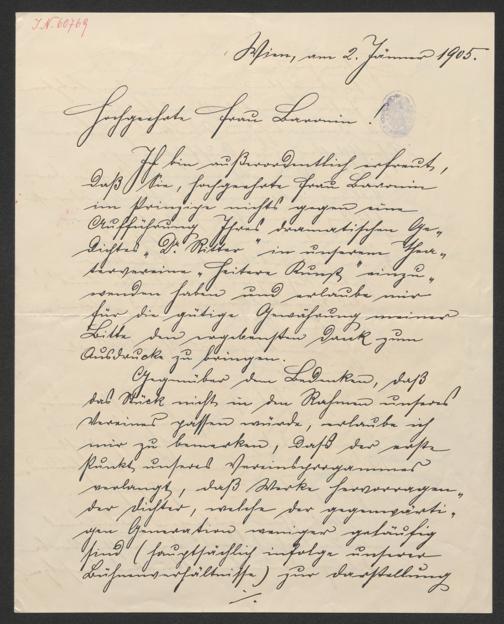 I.N. 60769
Wien, am 2. Jänner 1905.
Hochgeehrte Frau Baronin!
Ich bin außerordentlich erfreut,
daß Sie, hochgeehrte Frau Baronin
im Prinzipe nichts gegen eine
Aufführung Ihres dramatischen Ge-
dichtes „Dr. Ritter“ in unserem Thea-
tervereine „Heitere Kunst“ einzu-
wenden haben und erlaube mir
für die gütige Gewährung meiner
Bitte den ergebensten Dank zum
Ausdrucke zu bringen.
Gegenüber den Bedenken, daß
das Stück nicht in den Rahmen unseres
Vereines passen würde, erlaube ich
mir zu bemerken, daß der erste
Punkt unseres Vereinsprogrammes
verlangt, daß Werke hervorragen-
der Dichter, welche der gegenwärti-
gen Generation weniger geläufig
sind (hauptsächlich infolge unserer
Bühnenverhältnisse) zur Darstellung
./.